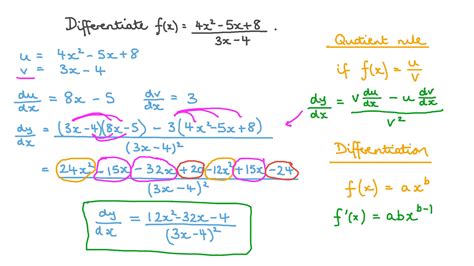 Differentiate f(x) = (4x² - 5x + 8)/(3x - 4).
u = 4x² - 5x + 8
v = 3x - 4
du/dx = 8x - 5    dv/dx = 3
dy/dx = ((3x - 4)(8x - 5) - 3(4x² - 5x + 8))/(3x - 4)²
= (24x² - 15x - 32x + 20 - 12x² + 15x - 24)/(3x - 4)²
dy/dx = (12x² - 32x - 4)/(3x - 4)²
Quotient rule
if f(x) = u/v
dy/dx = (v du/dx - u dv/dx)/v²
Differentiation
f(x) = ax^b
f'(x) = abx^(b-1)